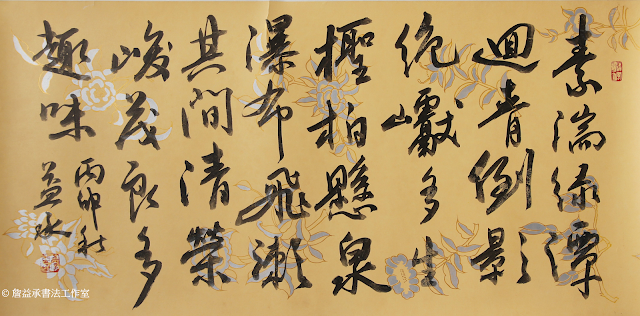 素湍綠潭
迴清倒影
絕巘多生
檉柏懸泉
瀑布飛漱
其間清榮
峻茂良多
趣味
丙申秋
益承
© 詹益承書法工作室